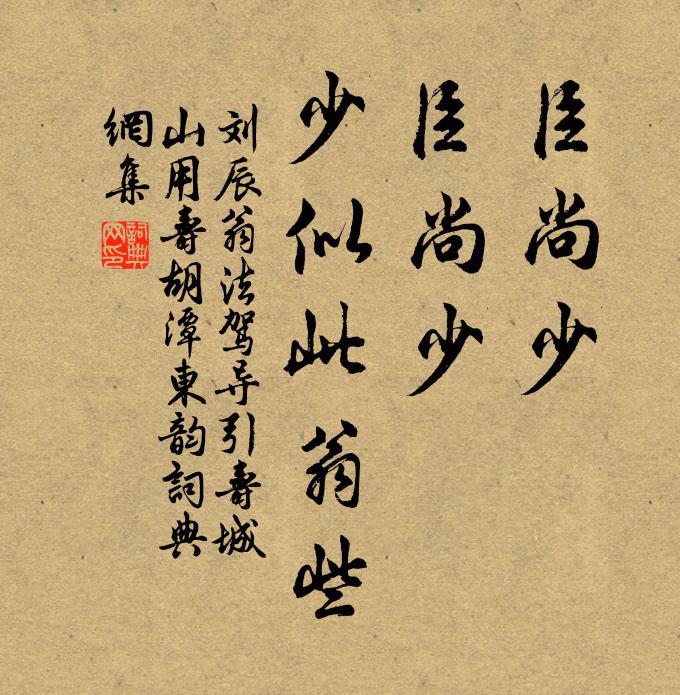 臣尚少
臣尚少
少似此翁些
刘辰翁法驾导引寿城
山用寿胡潭東韵詞典
網集
詞典网印